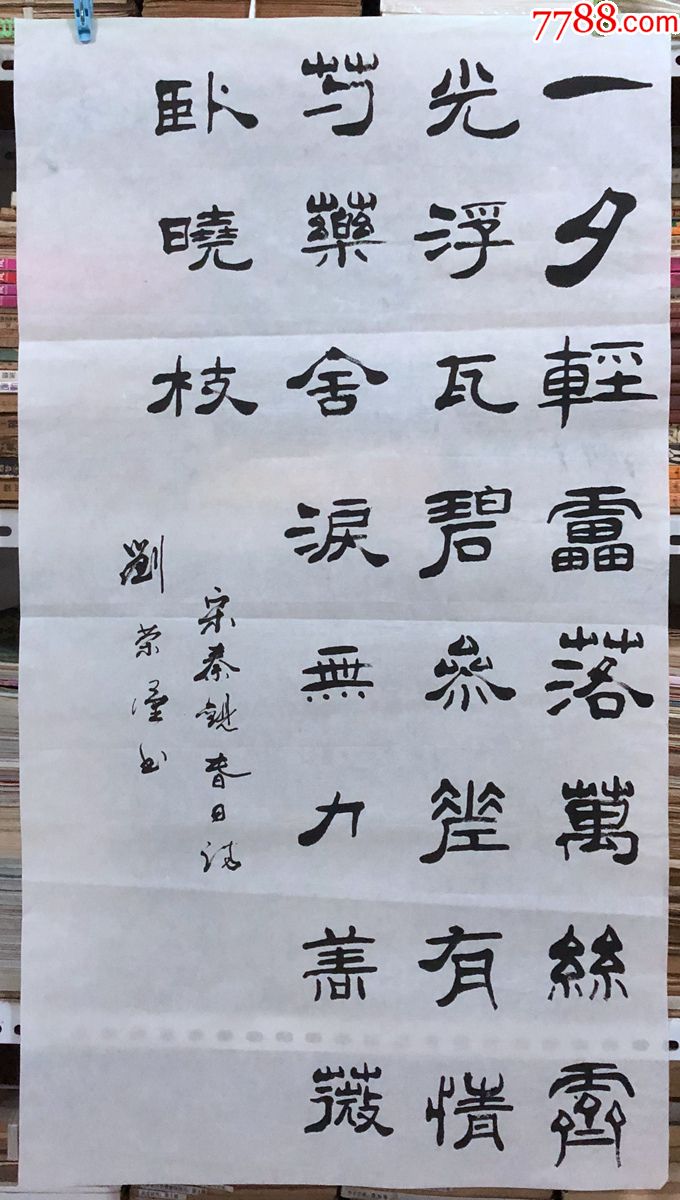 7788.com
一夕輕靁落萬絲霽
光浮瓦碧參差有情
芍藥舍淚無力薔薇
臥曉枝
宋秦觀春日詩
劉荣书